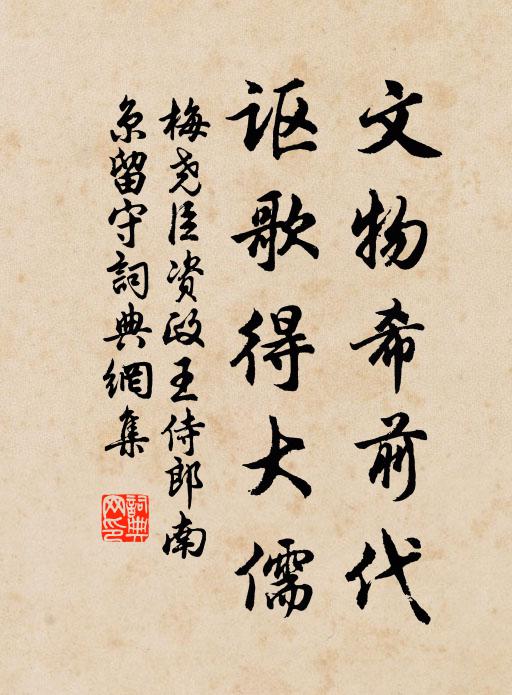 文物希前代
讴歌得大儒
梅尧臣资政王侍郎南
京留守詞典網集
詞典网印